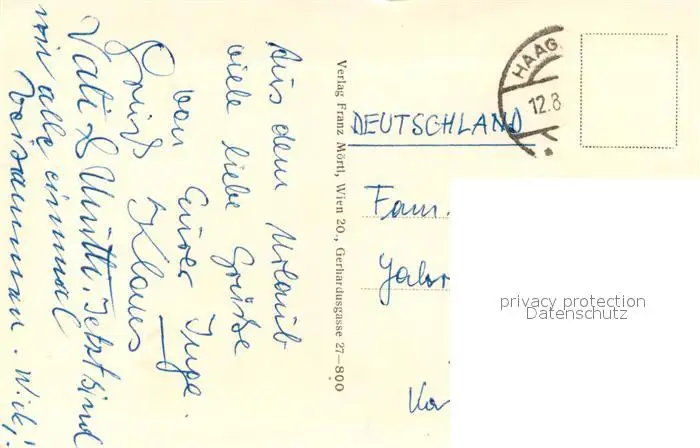 Aus dem Urlaub
viele liebe Grüße
von Eurer Inge.
Gruß Klaus
Vati & Mutti. Jetzt sind
wir alle einmal
beisammen.
Verlag Franz Mörtl, Wien 20., Gerhardusgasse 27—800
HAAG
12.8
DEUTSCHLAND
Fam.
privacy protection
Datenschutz